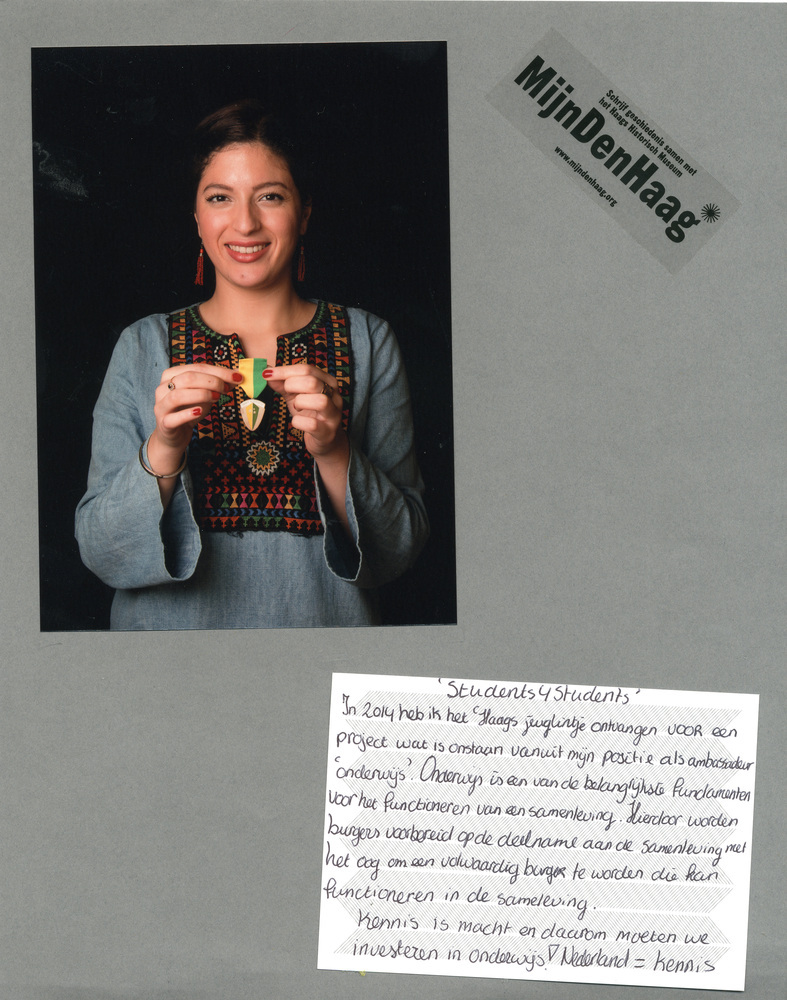 Schrijf geschiedenis samen met
het Haags Historisch Museum
MijnDenHaag
www.mijndenhaag.org
'Students4Students'
In 2014 heb ik het 'Haags jeuglintje ontvangen voor een
project wat is onstaan vanuit mijn positie als ambassadeur
'onderwijs'. Onderwijs is een van de belangrijkste fundamenten
voor het functioneren van een samenleving. Hierdoor worden
burgers voorbereid op de deelname aan de samenleving met
het oog om een volwaardig burger te worden die kan
functioneren in de sameleving.
Kennis is macht en daarom moeten we
investeren in onderwijs! Nederland = Kennis